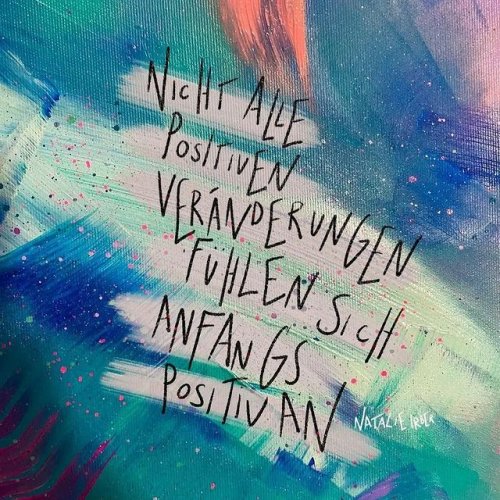 NICHT ALLE
POSITIVEN
VERÄNDERUNGEN
FÜHLEN SICH
ANFANGS
POSITIV AN
NATALIE